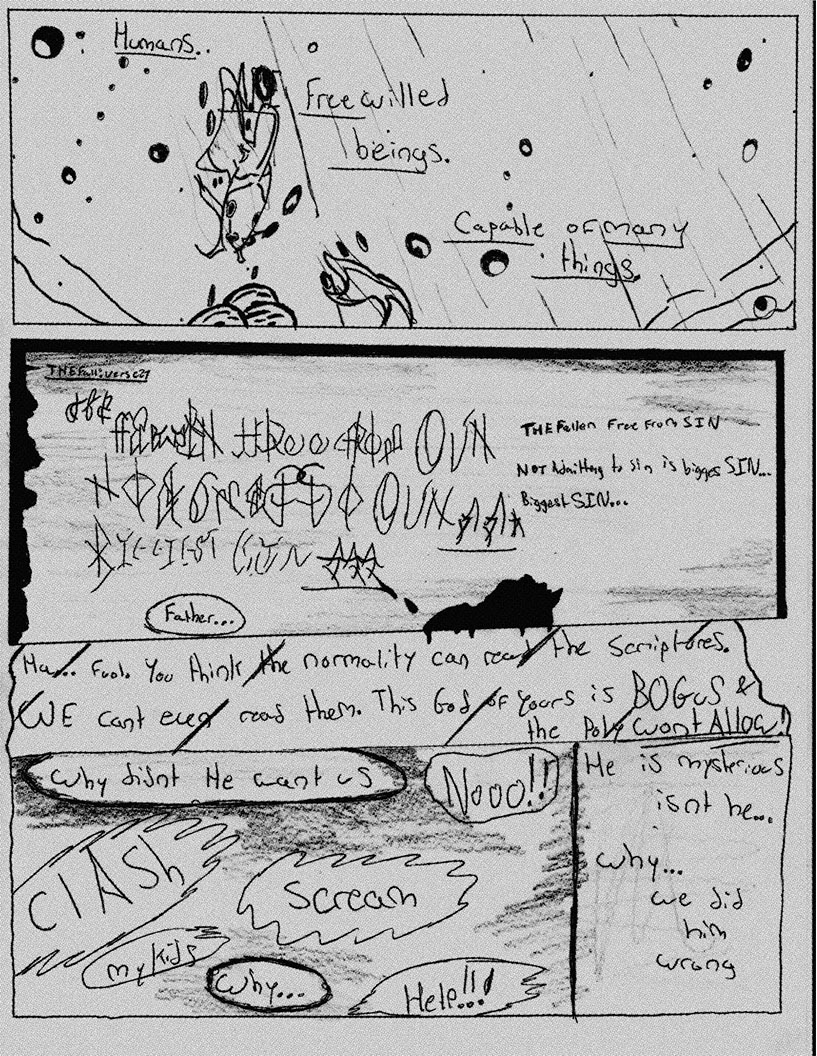 Humans..
Free willed
beings.
Capable of many
things.
THE Fallen Free From SIN
NOT Admitting to Sin is bigges SIN...
Biggest SIN...
Father...
Ha... Fool. You think the normality can read the Scriptures.
WE cant even read them. This God of yours is BOGUS &
the Poly wont Allow!
Why didnt He want us
Nooo!!
He is mysterious
isnt he...
CLASh
Scream
why...
we did
him
wrong
my kids
Why...
Help!!!